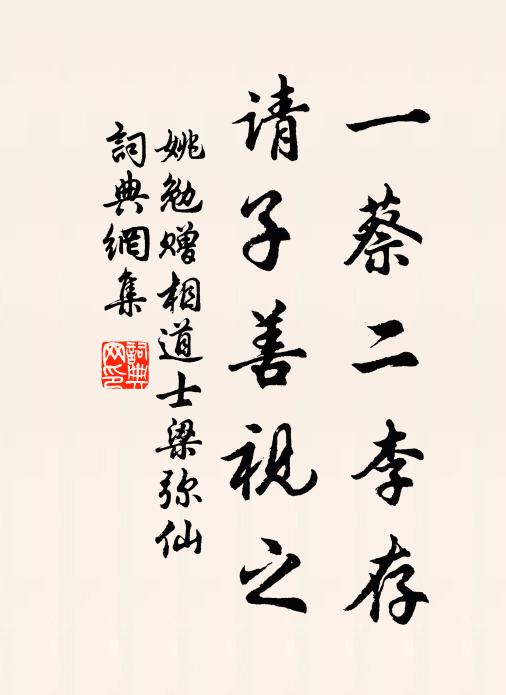 一蔡二李存
请子善视之
姚勉赠相道士梁弥仙
詞典網集
詞典
网印